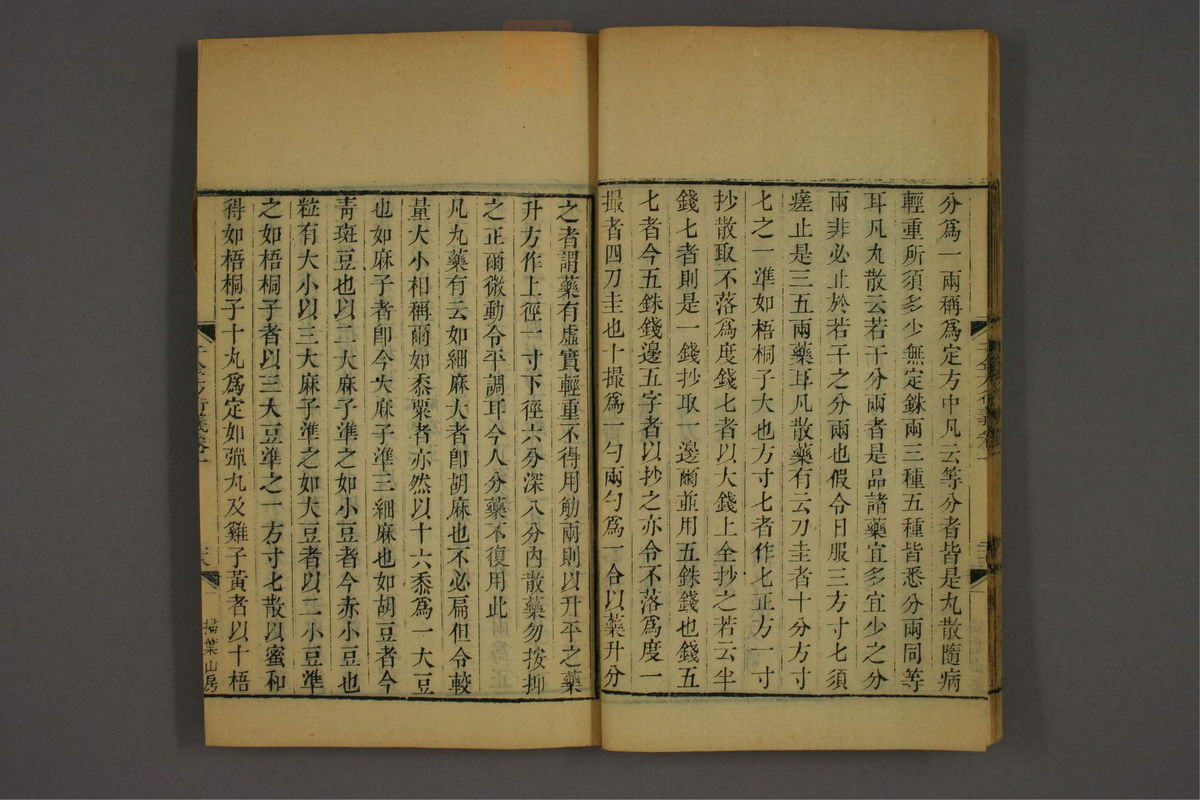 分爲一兩稱爲定方中凡云等分者皆是丸散隨病
輕重所須多少無定銖兩三種五種皆悉分兩同等
耳凡丸散云若干分兩者是品諸藥宜多宜少之分
兩非必止於若干之分兩也假令日服三方寸匕須
瘥止是三五兩藥耳凡散藥有云刀圭者十分方寸
匕之一準如梧桐子大也方寸匕者作匕正方一寸
抄散取不落爲度錢匕者以大錢上全抄之若云半
錢匕者則是一錢抄取一邊爾並用五銖錢也錢五
匕者今五銖錢邊五字者以抄之亦令不落爲度一
撮者四刀圭也十撮爲一勺兩勺爲一合以藥升分
之者謂藥有虛實輕重不得用觔兩則以升平之藥
升方作上徑一寸下徑六分深八分內散藥勿按抑
之正爾微動令平調耳今人分藥不復用此
凡丸藥有云如細麻大者卽胡麻也不必扁但令較
量大小相稱爾如黍粟者亦然以十六黍爲一大豆
也如麻子者卽今大麻子準三細麻也如胡豆者今
靑斑豆也以二大麻子準之如小豆者今赤小豆也
粒有大小以三大麻子準之如大豆者以二小豆準
之如梧桐子者以三大豆準之一方寸匕散以蜜和
得如梧桐子十丸爲定如彈丸及雞子黃者以十梧
千金方衍義卷一
掃葉山房